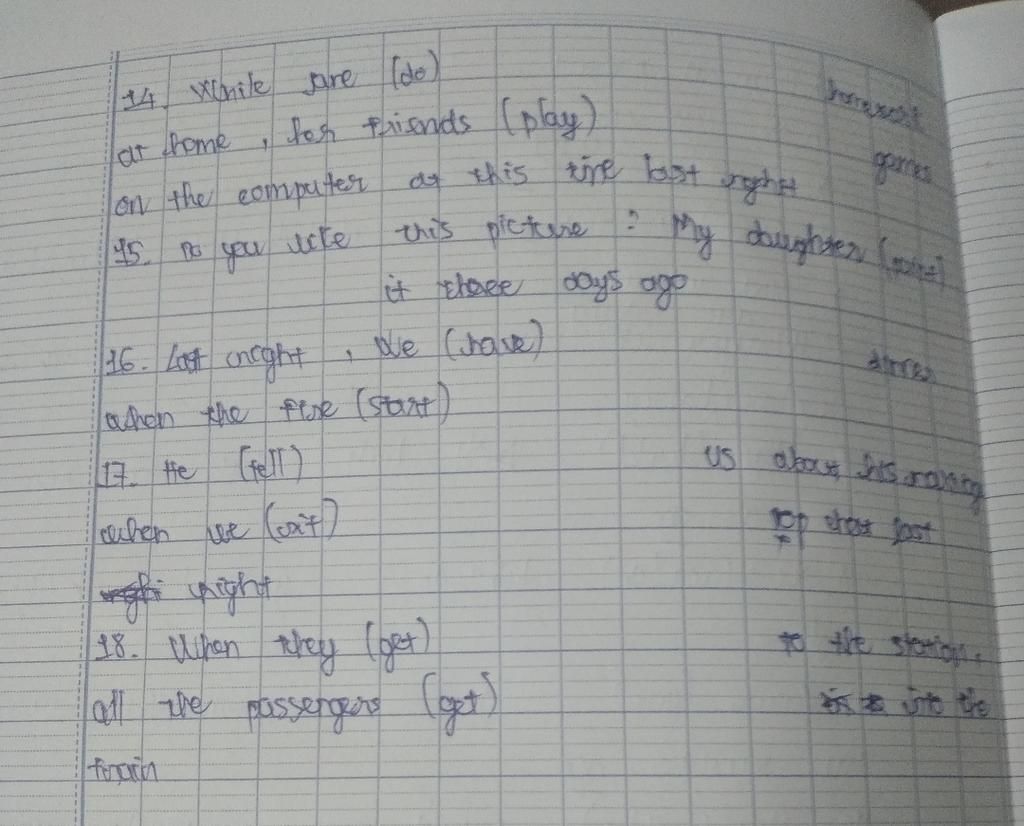 14. While are (do) homework
at home, her friends (play) games
on the computer at this time last night
15. Do you like this picture? My daughter (paint)
it three days ago
16. Last night, we (have) dinner
when the fire (start)
17. He (tell) us about his
when we (eat) that last
night
18. When they (get) to the station.
all the passengers (get) into the
train